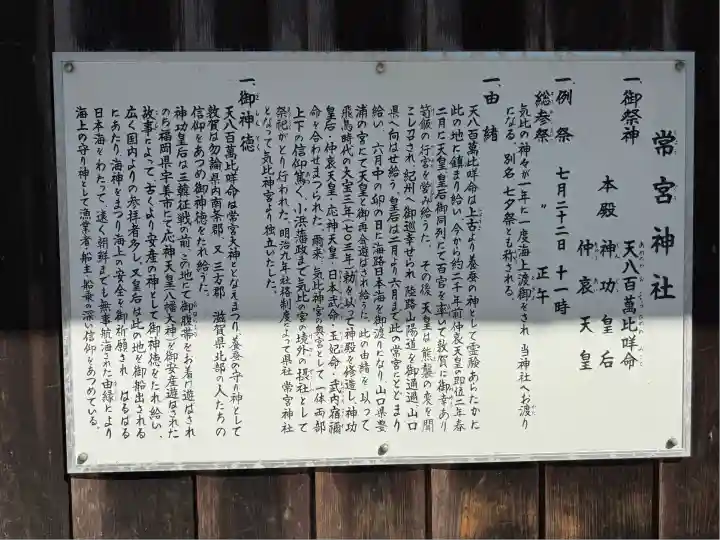 常宮神社
一、御祭神
本殿 天八百萬比咩命
神功皇后
仲哀天皇
一、例祭 七月二十二日 十一時
総参祭 〃 正午
気比の神々が一年に一度海上渡御をされ、当神社へお渡り
になる。別名七夕祭とも称される。
一、由緒
天八百萬比咩命は上古より養蚕の神として霊験あらたかに
此の地に鎮まり給い、今から約二千年前仲哀天皇の即位二年春
二月に天皇、皇后御同列にて百官を率いて敦賀に御幸あり
笥飯の行宮を営み給うた。その後天皇は熊襲の変を聞
こし召され、紀州へ御巡幸せられ陸路山陽道を御通過、山口
県へ向はせ給う。皇后は二月より六月まで此の常宮にとどまり
給い、六月中の卯の日に海路日本海を御渡りになり山口県豊
浦の宮にて天皇と御再会遊ばされ給た。此の由緒を以って
飛鳥時代の大宝三年(七〇三年)勅を以って神殿を修造し、神功
皇后・仲哀天皇・応神天皇・日本武命・玉妃命・武内宿禰
命を合わせまつられた。爾来、気比神宮の奥宮として一体両部
上下の信仰篤く、小浜藩政まで気比の宮の境外の摂社として
祭祀がとり行われた。明治九年社格制度によって県社常宮神社
となって気比神宮より独立いたした。
一、御神徳
天八百萬比咩命は常宮大神ととなえまつり、養蚕の守り神として
敦賀は勿論県内南条郡又三方郡滋賀県北部の人たちの
信仰をあつめ御神徳をたれ給うた。
神功皇后は三韓征戦の前、この地にて御腹帯をお着け遊ばされ
のち福岡県宇美市にて応神天皇(八幡大神)を御安産遊ばされた
故事によって、古くより安産の神として御神徳をたれ給い、
広く国内よりの参拝者多し。又皇后は此の地を御船出される
にあたり、海神をまつり海上の安全を御祈願され、はるばる
日本海をわたって、遠く朝鮮までも無事航海された由縁により
海上の守り神として漁業者・船主・船乗の深い信仰をあつめている。